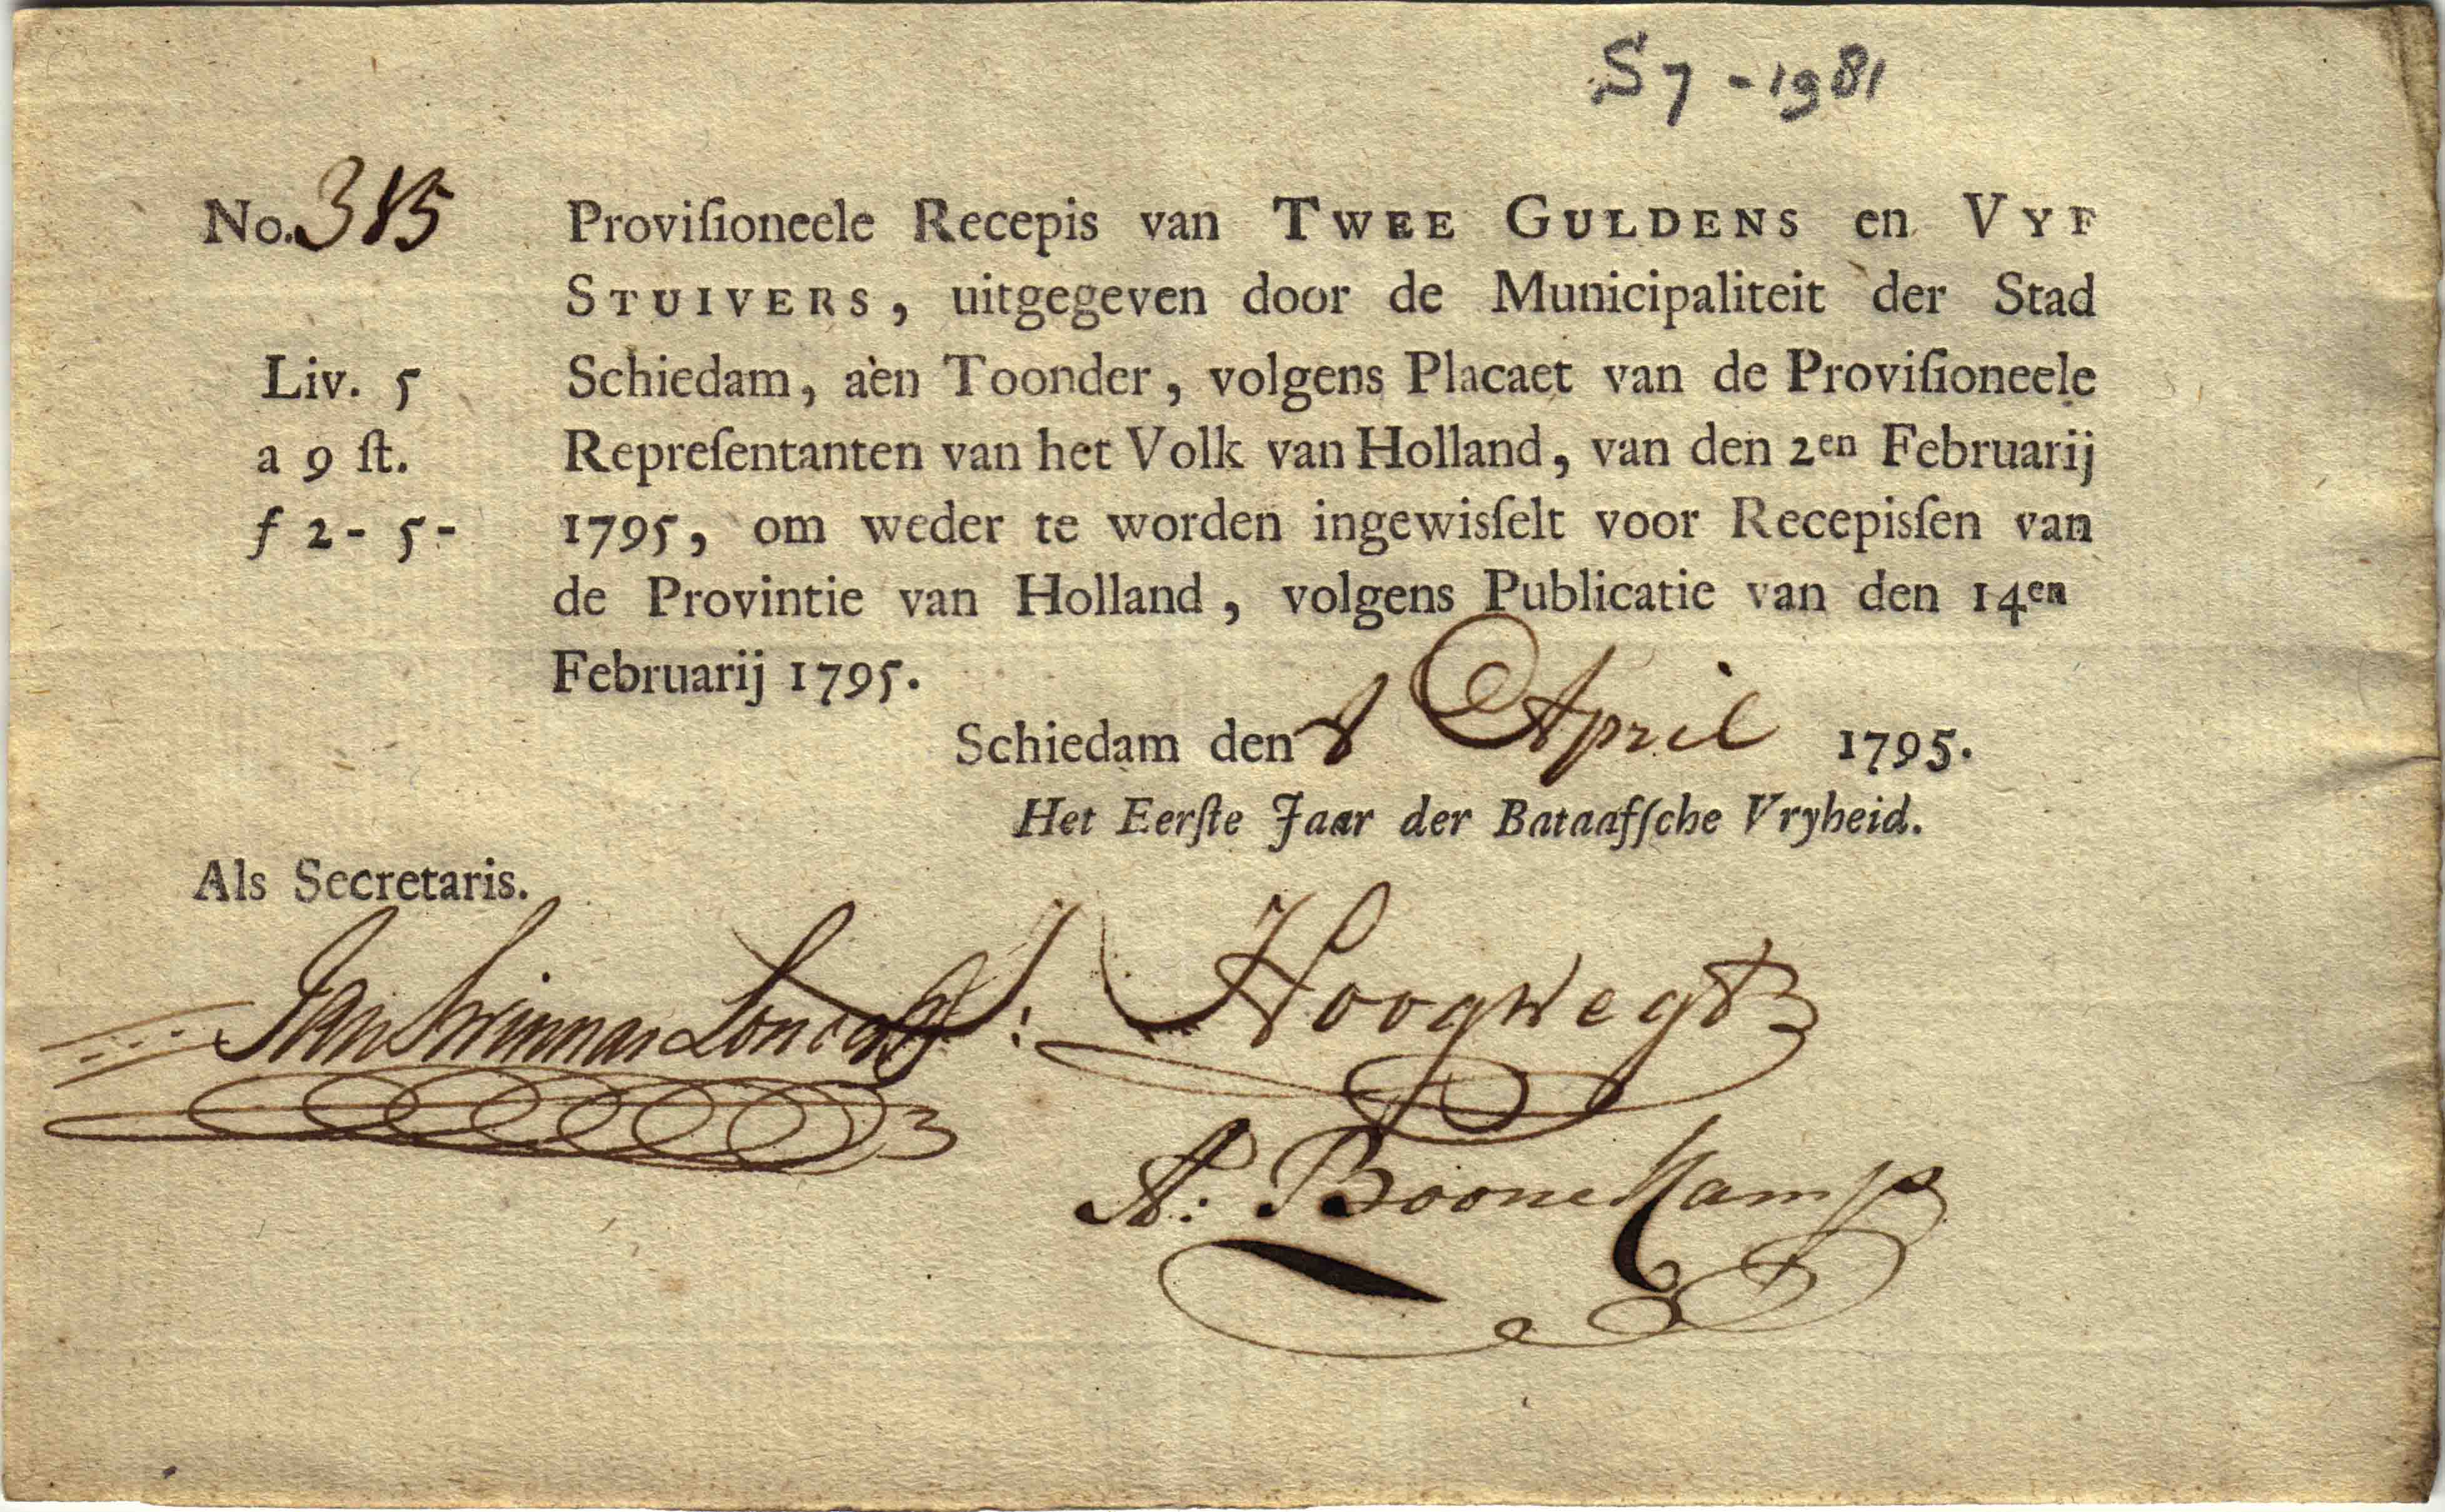 S 7 - 1981
No. 385 Proviſioneele Recepis van TWEE GULDENS en VYF
STUIVERS, uitgegeven door de Municipaliteit der Stad
Liv. 5 Schiedam, aen Toonder, volgens Placaet van de Proviſioneele
a 9 ſt. Repreſentanten van het Volk van Holland, van den 2en Februarij
f 2 - 5 - 1795, om weder te worden ingewisſelt voor Recepisſen van
de Provintie van Holland, volgens Publicatie van den 14en
Februarij 1795.
Schiedam den 8 April 1795.
Het Eerſte Jaar der Bataafſche Vryheid.
Als Secretaris.
Jan
J: Hoogwegt
A: Boonekamp